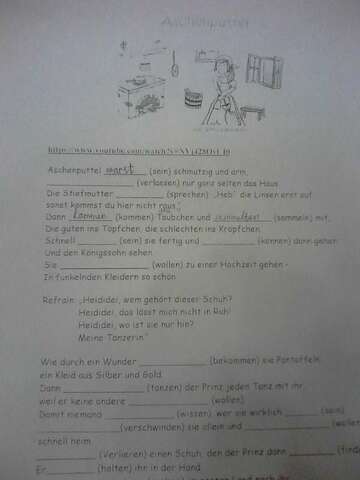 Aschenputtel
Aschenputtel warst (sein) schmutzig und arm,
____________ (verlassen) nur ganz selten das Haus
Die Stiefmutter ____________ (sprechen): „Heb' die Linsen erst auf
sonst kommst du hier nicht raus."
Dann kommen (kommen) Täubchen und (sammeln) mit,
Die guten ins Töpfchen, die schlechten ins Kröpfchen
Schnell ________ (sein) sie fertig und ________ (können) dann gehen
Und den Königssohn sehen.
Sie ____________ (wollen) zu einer Hochzeit gehen -
In funkelnden Kleidern so schön.
Refrain: „Heididei, wem gehört dieser Schuh?
Heididei, das lässt mich nicht in Ruh!
Heididei, wo ist sie nur hin?
Meine Tänzerin."
Wie durch ein Wunder ____________ (bekommen) sie Pantoffeln,
ein Kleid aus Silber und Gold.
Dann ____________ (tanzen) der Prinz jeden Tanz mit ihr,
weil er keine andere ____________ (wollen).
Damit niemand ____________ (wissen), wer sie wirklich ________ (sein)
____________ (verschwinden) sie allein und ____________ (wollen
schnell heim.
____________ (Verlieren) einen Schuh, den der Prinz dann ________ (finde
Er ____________ (halten) ihr in der Hand